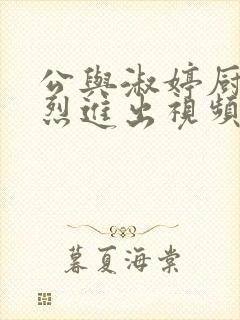 公與淑婷厨
烈進出視頻
暮夏海棠